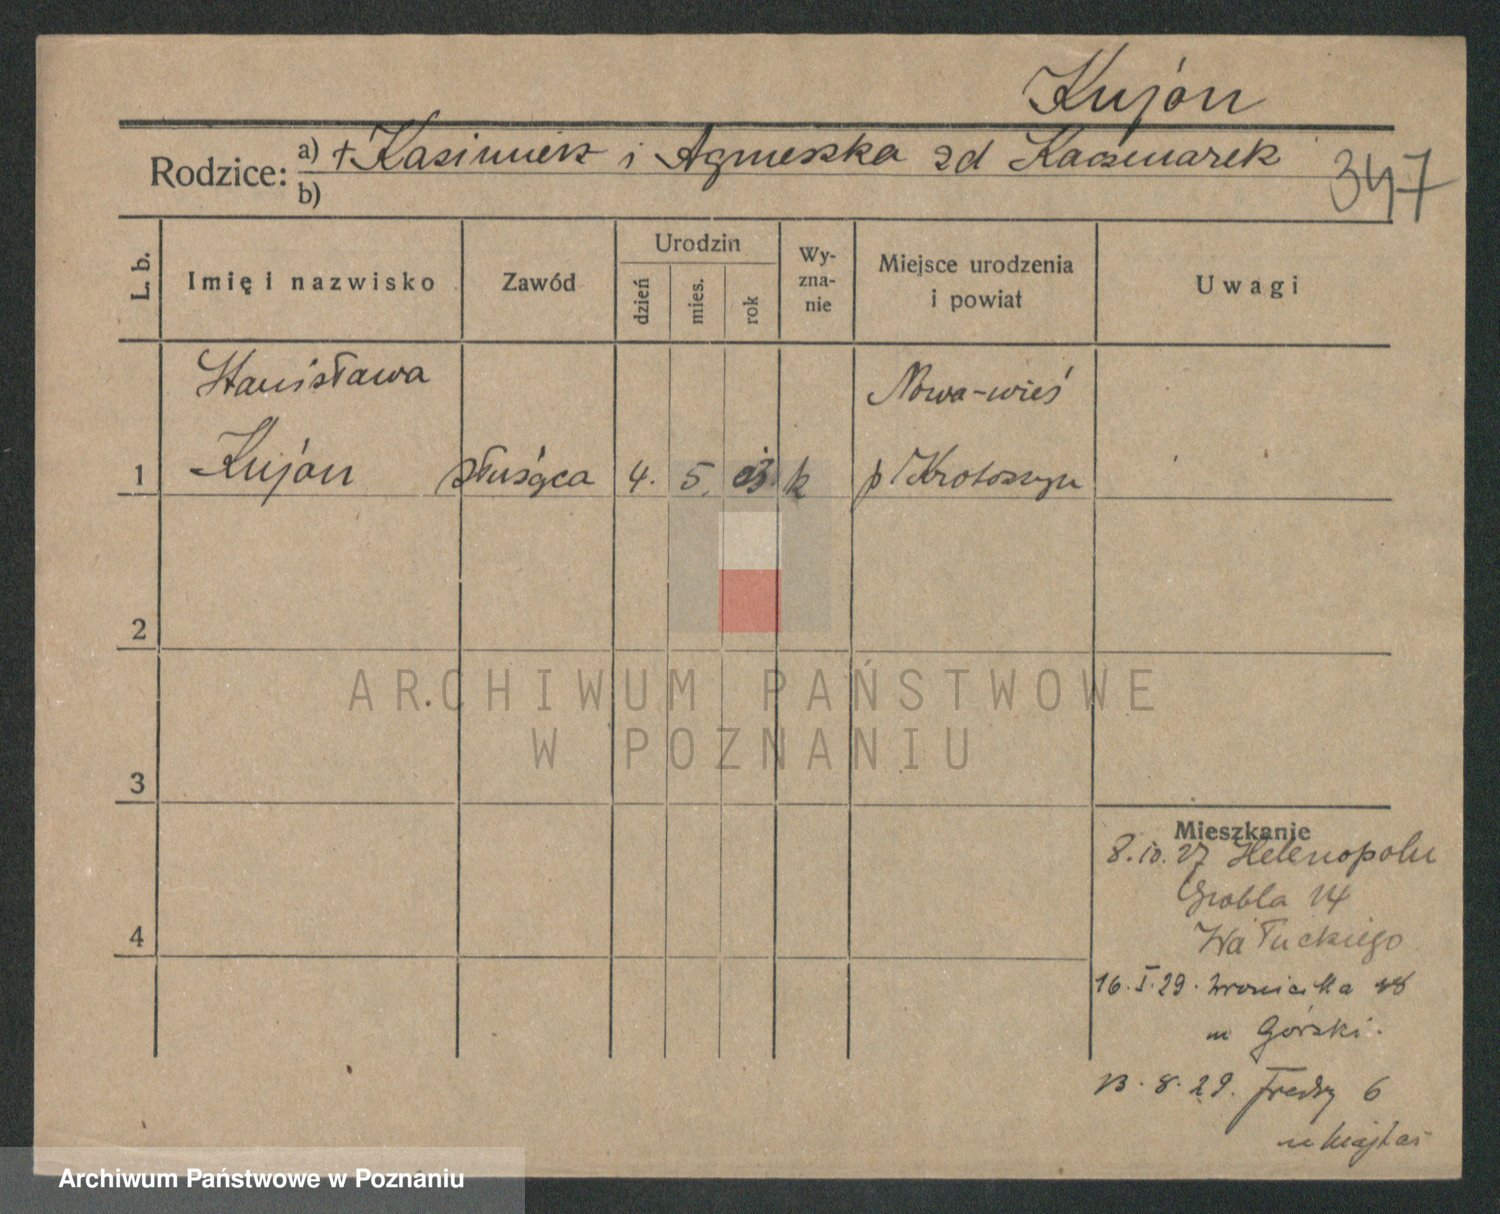 Kujón
Rodzice: a) +Kazimierz i Agnieszka zd Kaczmarek
b)
347
L. b.
Imię i nazwisko
Zawód
Urodzin
dzień
mies.
rok
Wy-
zna-
nie
Miejsce urodzenia
i powiat
Uwagi
Stanisława
Nowa-wieś
1 Kujon służąca 4. 5. k p Krotoszyn
2
3
4
ARCHIWUM PAŃSTWOWE
W POZNANIU
Mieszkanie
8.10.27 Helenopolu
Grobla 14
Wałuckiego
16.I.29. Wroniecka 18
u Górski.
13.8.29. Fredry 6
u
Archiwum Państwowe w Poznaniu